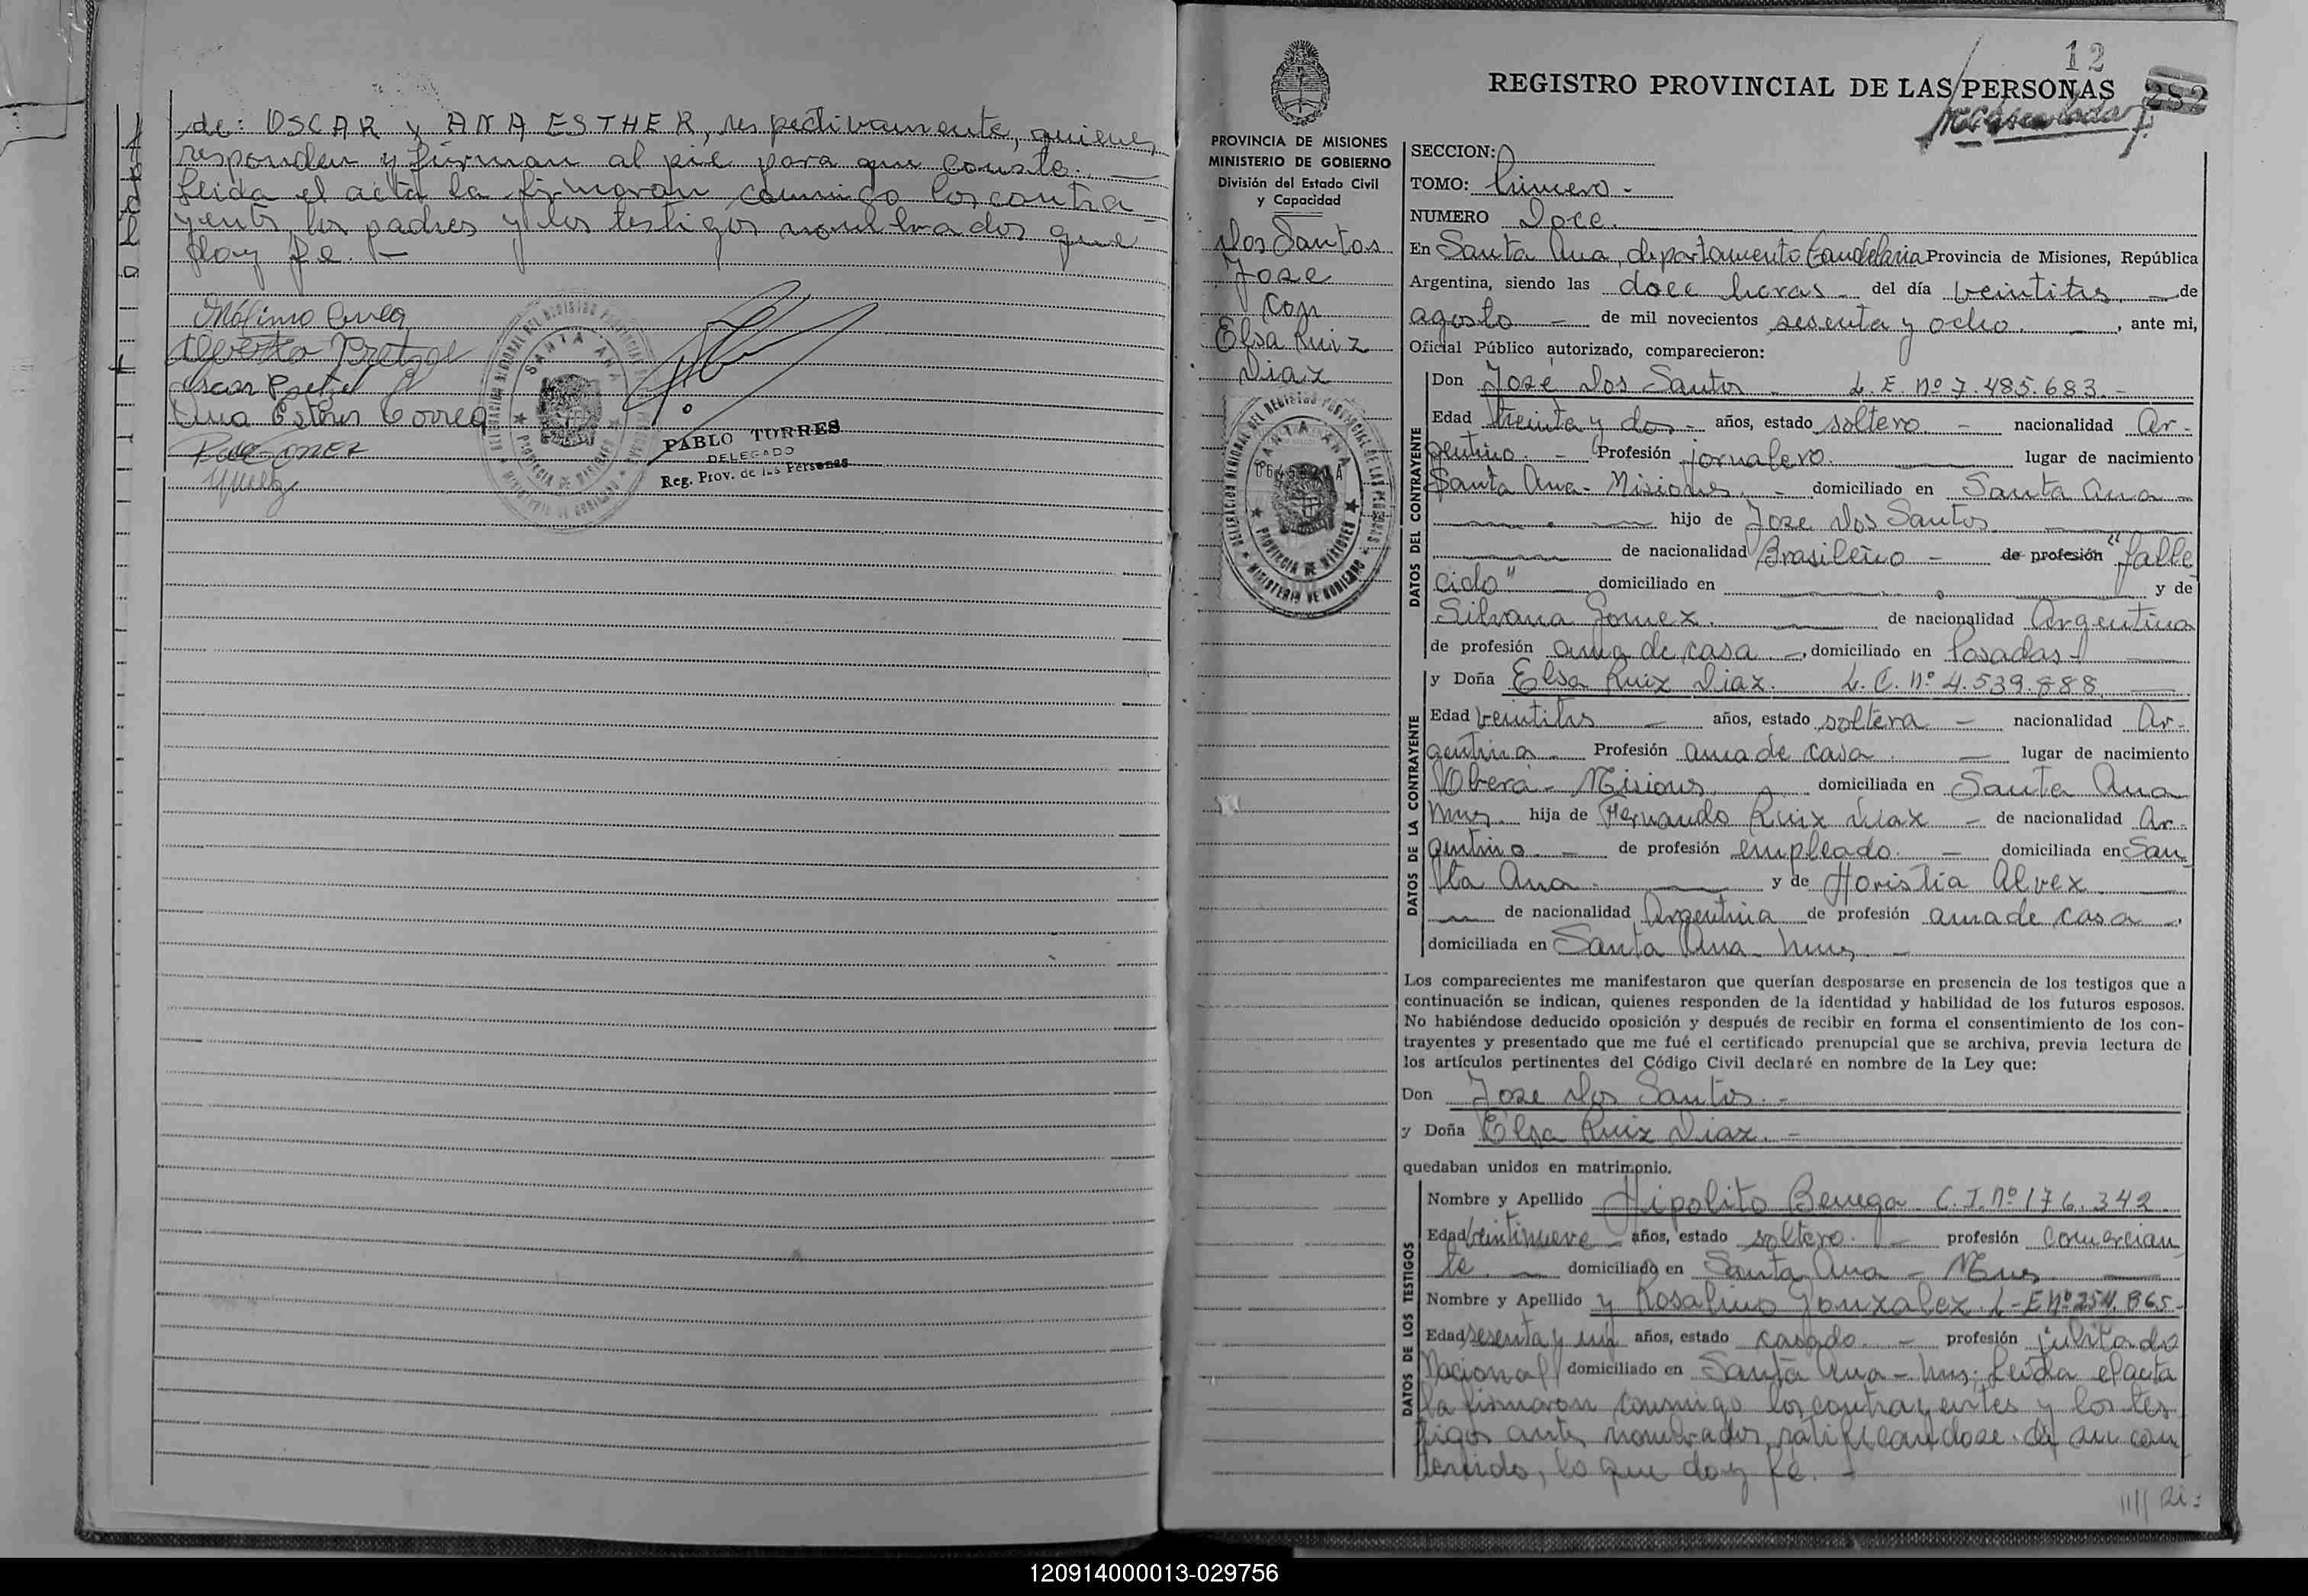 de: OSCAR y ANA ESTHER, respectivamente, quienes
responden y firman al pie para que conste. —
Leida el acta la firmaron conmigo los contra
yentes, los padres y los testigos nombrados que
doy fe. —
Alberto Pretzel
Oscar Pretzel
Ana Esther Correa
PABLO TORRES
DELEGADO
Reg. Prov. de las Personas
SANTA ANA
PROVINCIA DE MISIONES
12
REGISTRO PROVINCIAL DE LAS PERSONAS
PROVINCIA DE MISIONES
MINISTERIO DE GOBIERNO
División del Estado Civil
y Capacidad
Dos Santos
Jose
con
Elsa Ruiz
Diaz
SANTA ANA
PROVINCIA DE MISIONES
MINISTERIO DE GOBIERNO
SECCION:
TOMO: Primero -
NUMERO Doce.
En Santa Ana, departamento Candelaria Provincia de Misiones, República
Argentina, siendo las doce horas - del día veintitres. — de
agosto — de mil novecientos sesenta y ocho. —, ante mi,
Oficial Público autorizado, comparecieron:
DATOS DEL CONTRAYENTE
Don José Dos Santos - L. E. Nº 7.485.683. -
Edad treinta y dos - años, estado soltero - nacionalidad Ar-
gentino. - Profesión jornalero. lugar de nacimiento
Santa Ana - Misiones. - domiciliado en Santa Ana -
hijo de Jose Dos Santos
de nacionalidad Brasileño - de profesión "falle
cido" domiciliado en y de
Silvana Gomez. de nacionalidad Argentina
de profesión ama de casa -, domiciliado en Posadas -
DATOS DE LA CONTRAYENTE
y Doña Elsa Ruiz Diaz. L. C. Nº 4.539.888
Edad veintitres - años, estado soltera - nacionalidad Ar-
gentina - Profesión ama de casa. — lugar de nacimiento
Oberá - Misiones. domiciliada en Santa Ana
Mnes. hija de Fernando Ruiz Diaz - de nacionalidad Ar-
gentino. - de profesión empleado. - domiciliada en San
ta Ana. y de Alvez
de nacionalidad Argentina de profesión ama de casa -,
domiciliada en Santa Ana - Mnes. -
Los comparecientes me manifestaron que querían desposarse en presencia de los testigos que a
continuación se indican, quienes responden de la identidad y habilidad de los futuros esposos.
No habiéndose deducido oposición y después de recibir en forma el consentimiento de los con-
trayentes y presentado que me fué el certificado prenupcial que se archiva, previa lectura de
los artículos pertinentes del Código Civil declaré en nombre de la Ley que:
Don Jose Dos Santos. -
y Doña Elsa Ruiz Diaz. -
quedaban unidos en matrimonio.
DATOS DE LOS TESTIGOS
Nombre y Apellido Hipolito C. I. Nº 176.342
Edad veintinueve - años, estado soltero. - profesión comercian
te. - domiciliado en Santa Ana - Mnes.
Nombre y Apellido y Rosalino Gonzalez. L-E Nº 254.865
Edad sesenta y un años, estado casado. - profesión jubilado
Nacional domiciliado en Santa Ana - Mnes; Leida el acta
la firmaron conmigo los contrayentes y los tes
tigos antes nombrados, ratificandose de su con
tenido, lo que doy fe. -
120914000013-029756